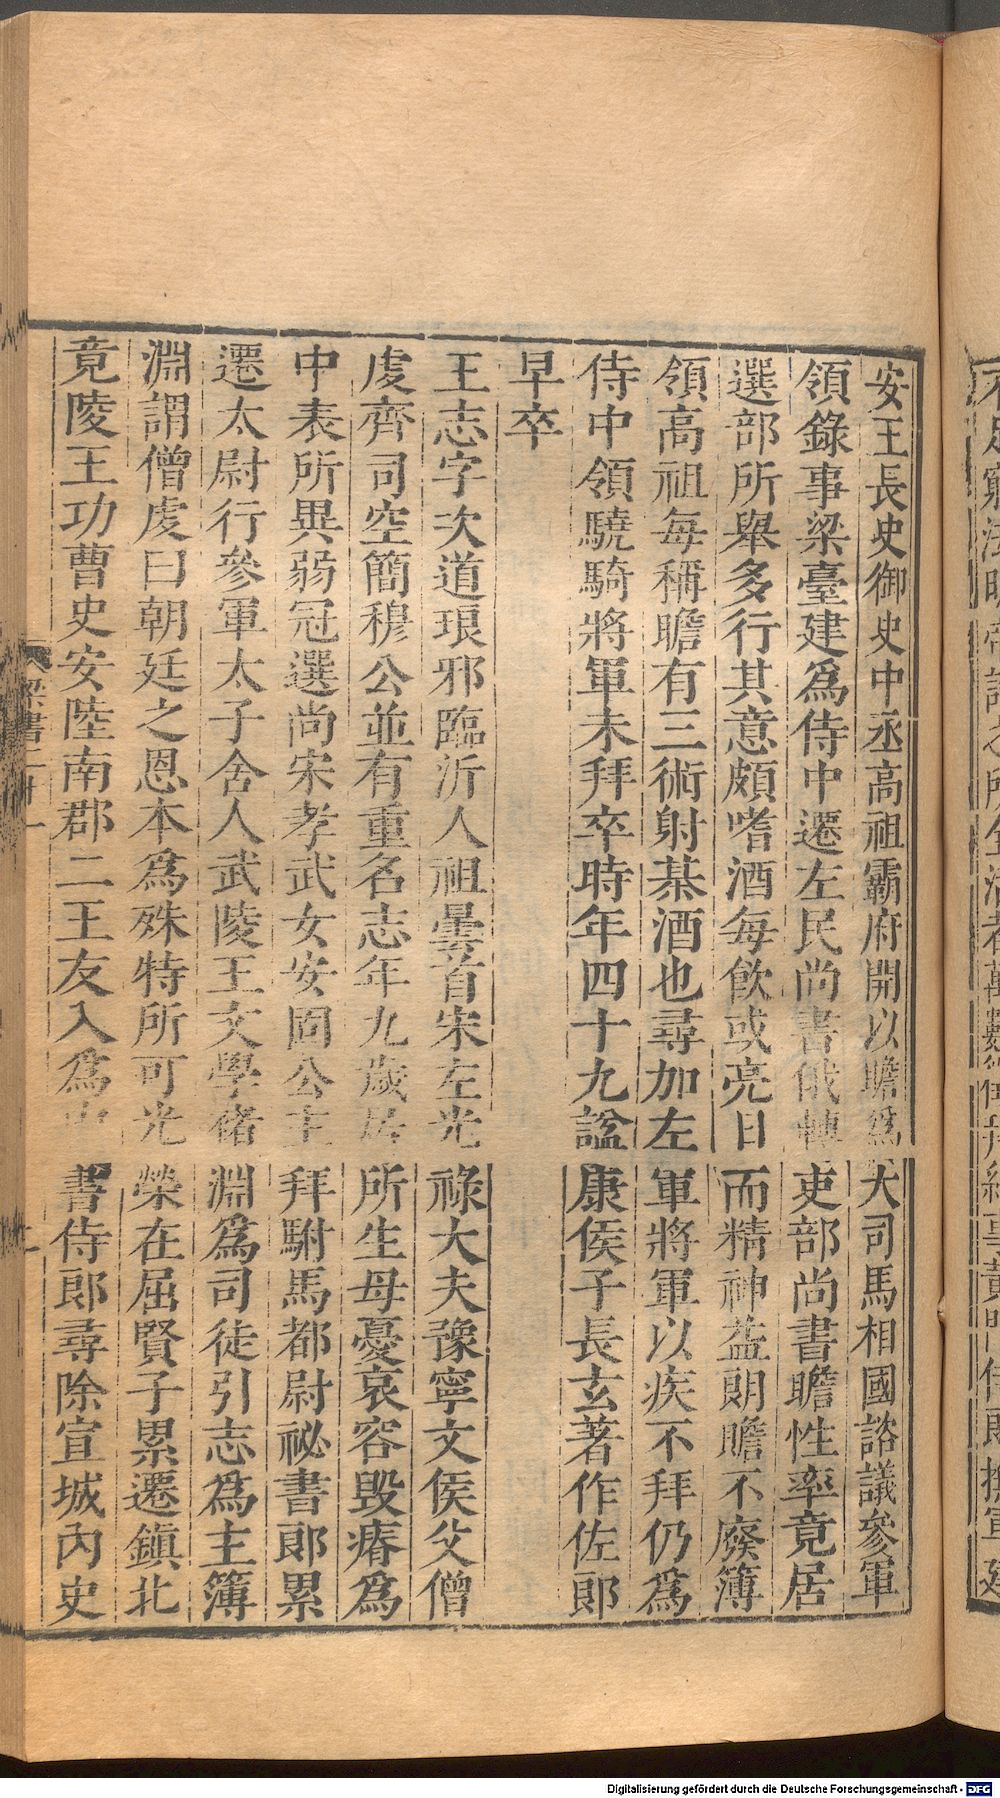 安王長史御史中丞高祖霸府開以瞻爲大司馬相國諮議參軍
領錄事梁臺建爲侍中遷左民尚書俄轉吏部尚書瞻性率竟居
選部所舉多行其意頗嗜酒每飮或竟日而精神益朗瞻不廢簿
領高祖每稱瞻有三術射棊酒也尋加左軍將軍以疾不拜仍爲
侍中領驍騎將軍未拜卒時年四十九諡康侯子長玄著作佐郎
早卒
王志字次道琅邪臨沂人祖曇首宋左光祿大夫豫寧文侯父僧
虔齊司空簡穆公並有重名志年九歲居所生母憂哀容毀瘠爲
中表所異弱冠選尚宋孝武女安固公主拜駙馬都尉祕書郎累
遷太尉行參軍太子舍人武陵王文學褚淵爲司徒引志爲主簿
淵謂僧虔曰朝廷之恩本爲殊特所可光榮在屈賢子累遷鎭北
竟陵王功曹史安陸南郡二王友入爲中書侍郎尋除宣城內史
梁書二十一
Digitalisierung gefördert durch die Deutsche Forschungsgemeinschaft - DFG